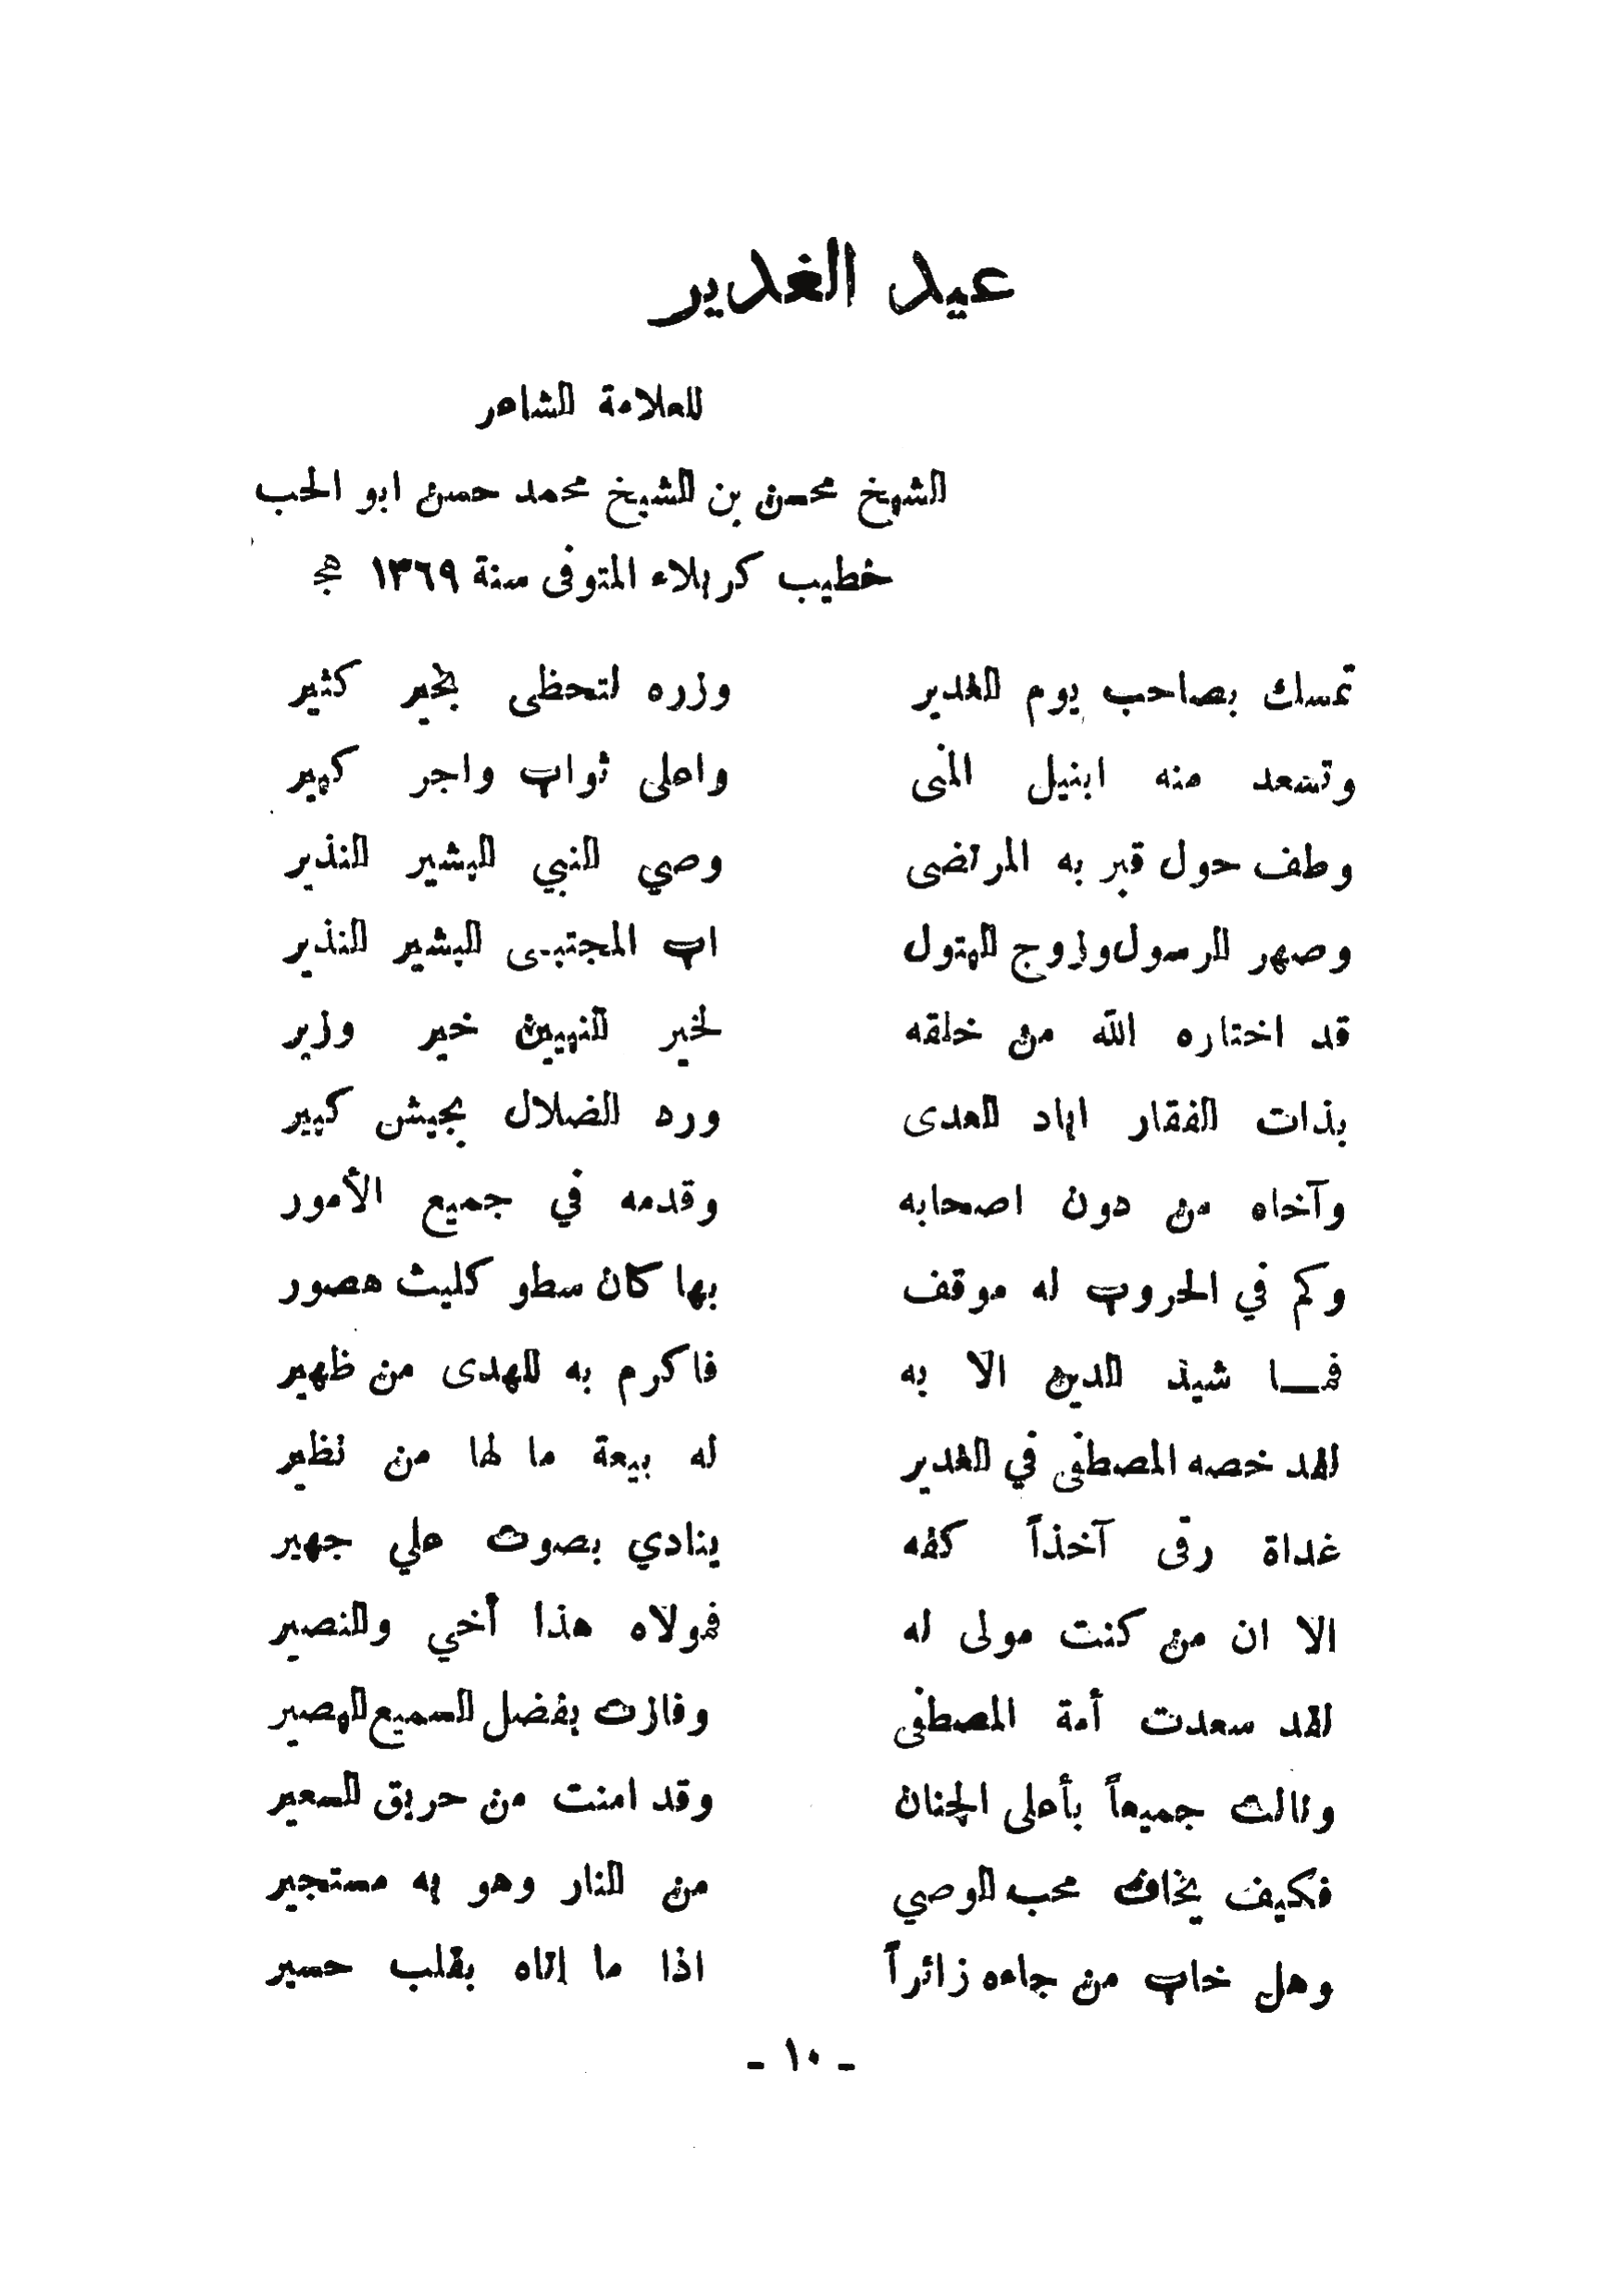 عيد الغدير
للعلامة الشاعر
الشيخ محسن بن الشيخ محمد حسن ابو الحب
خطيب كربلاء المتوفى سنة ١٣٦٩ هج
تمسك بصاحب يوم الغدير وزره لتحظى بخير كثير
وتسعد منه ابنيل المنى واعلى ثواب واجر كبير
وطف حول قبر به المرتضى وصي النبي البشير النذير
وصهر الرسول وزوج البتول اب المجتبى البشير النذير
قد اختاره الله من خلقه لخير النبيين خير وزير
بذات الفقار اباد العدى ورد الضلال بجيش كبير
وآخاه من دون اصحابه وقدمه في جميع الأمور
وكم في الحروب له موقف بها كان سطو كليث هصور
فما شيد الدين الا به فاكرم به للهدى من ظهير
لقد خصه المصطفى في الغدير له بيعة ما لها من نظير
غداة رقى آخذاً كفه ينادي بصوت علي جهير
الا ان من كنت مولى له فمولاه هذا أخي والنصير
لقد سعدت أمة المصطفى وفازت بفضل السميع البصير
ونالت جميعاً بأعلى الجنان وقد امنت من حريق السعير
فكيف يخاف محب الوصي من النار وهو به مستجير
وهل خاب من جاءه زائراً اذا ما اتاه بقلب حسير
- ١٠ -